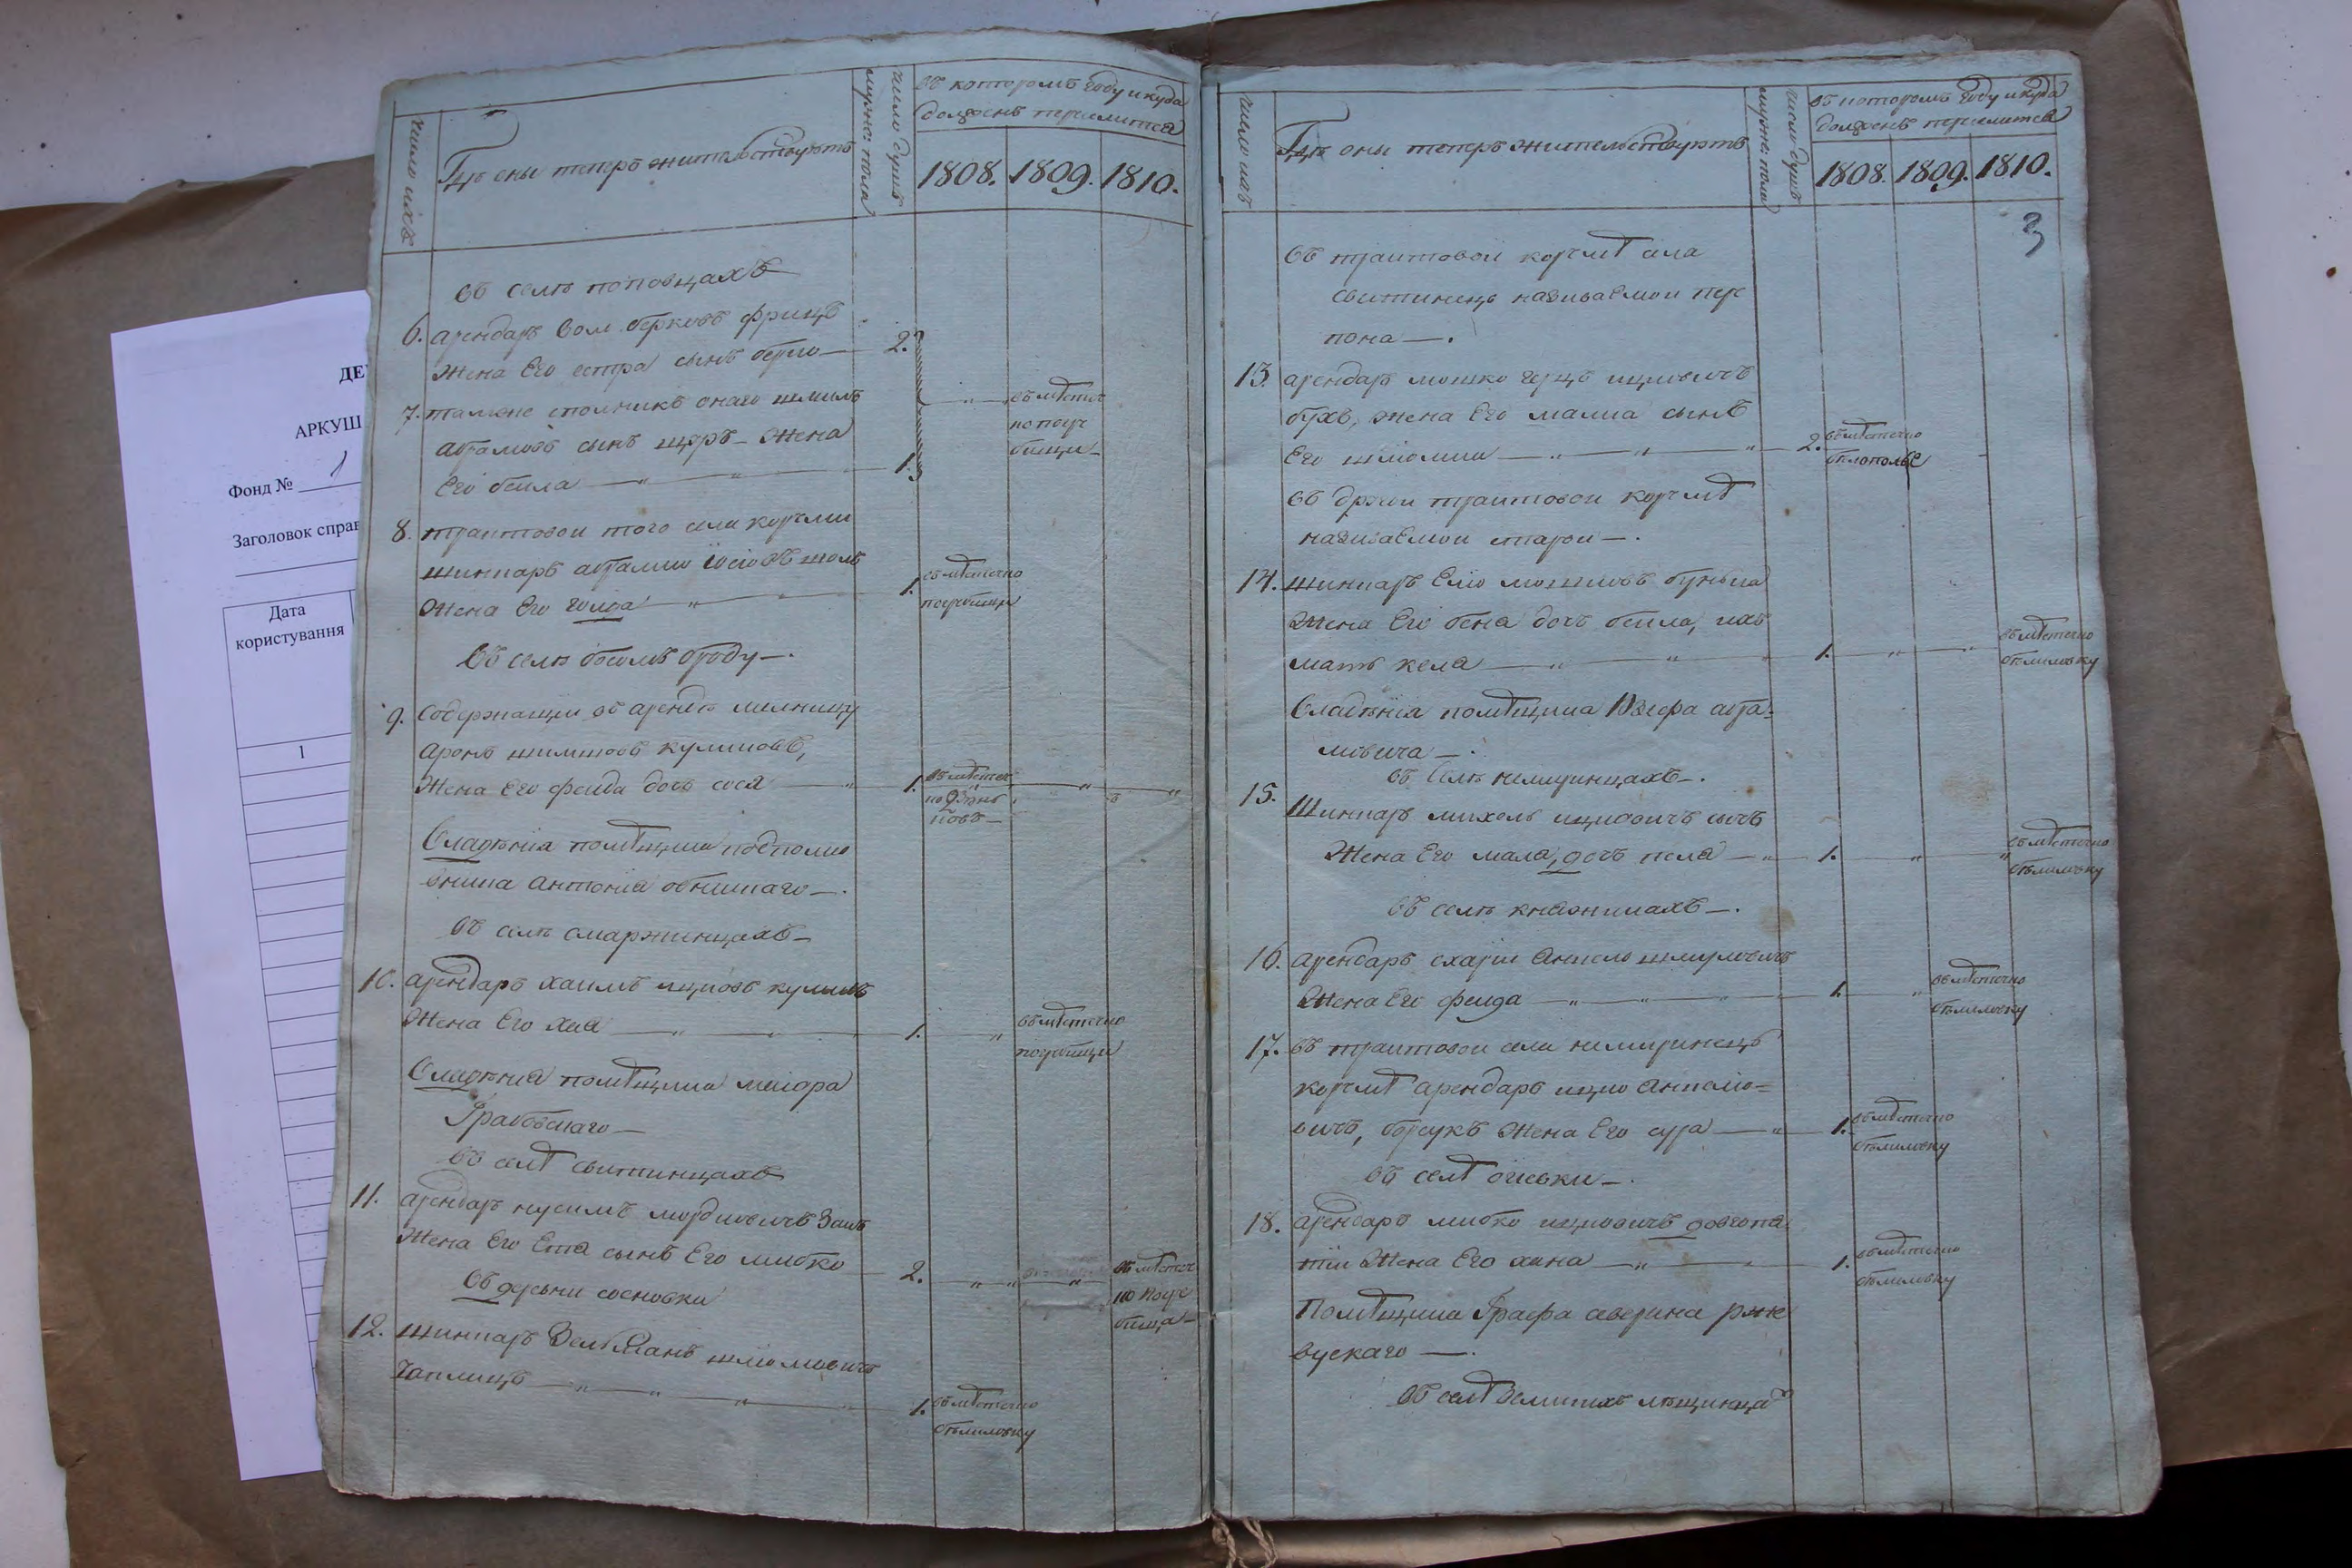 ДЕ
АРКУШ
Фонд № 1
Заголовок справ
Дата
користування
1
число ихъ
Где оны теперъ жителствуютъ
число душъ
мужс: пола
въ которомъ году и куда
долженъ переелитса
1808. 1809. 1810.
въ селе поповцахъ
6. арендарь Вол берковъ фрицъ
жена Его естра сынъ берко — 2.
7. тамже сполникъ онаго шмиль
абрамовъ сынъ — жена
Его беила — " — " — 1.
въ местеч
ко погр
бищи —
8. трактовои того села корчми
шинкарь абрамко иосіовъ
жена Его голда — " — 1.
въ местечко
погребищи
въ селе белом броду —.
9. Содержащи въ аренде мелницу
аронъ шимшовъ куликовъ,
жена Его феида дочъ сося — " 1.
въ местеч
ко
ковъ —
Владенія помещика подполко
вника антонія —.
въ селе смаржинцахъ —
10. арендарь хаимъ ицковъ куликъ
жена Его хая — " — " — 1. — "
въ местечко
погребищи
Владенія помещика маіора
Грабовскаго —
въ селе свитинцахъ
11. арендарь нусимъ мордковичъ Заяъ
жена Его Ета сынъ Его лиибко — 2. — " — " — "
въ местеч
ко погр
бища —
въ деревни сосновки
12. шинкарь Зельманъ шліомовичъ
чаплицъ — " — " — " — 1.
въ местечко
белиловку
число ихъ
Где оны теперъ жителствуютъ
число душъ
мужс: пола
въ которомъ году и куда
долженъ переелитса
1808. 1809. 1810.
3
въ трактовои корчме села
свитинецъ називаемои пере
пона —.
13. арендарь мошко герцъ ицковичъ
бухъ, жена Его малка сынъ
Его шліомка — " — " — " — 2.
въ местечко
белополье
въ другои трактовои корчме
називаемои старои —.
14. шинкарь Еліо мошковъ
жена Его бена дочъ беила, ихъ
мать кела — " — " — 1. — " — "
въ местечко
белиловку
Владенія помещика Юзефа абра=
мовича —.
въ селе немиринцахъ —.
15. Шинкарь михель ицковичъ
жена Его мала, дочъ песа — " — 1. — " — "
въ местечко
белиловку
въ селе княжикахъ —.
16. арендарь схаріи Аншель шмулевичъ
жена Его феига — " — " — " — 1. — "
въ местечко
белиловку
17. въ трактовои села немиринецъ
корчме арендарь ицко Аншелю=
вичъ, борсукъ жена Его сура — " — 1.
въ местечко
белиловку
въ селе огіевки —.
18. арендарь лиибко ицковичъ довгопа
тіи жена Его хана — " — 1.
въ местечко
белиловку
Помещика Графа северина рже
вускаго —.
въ селе великихъ